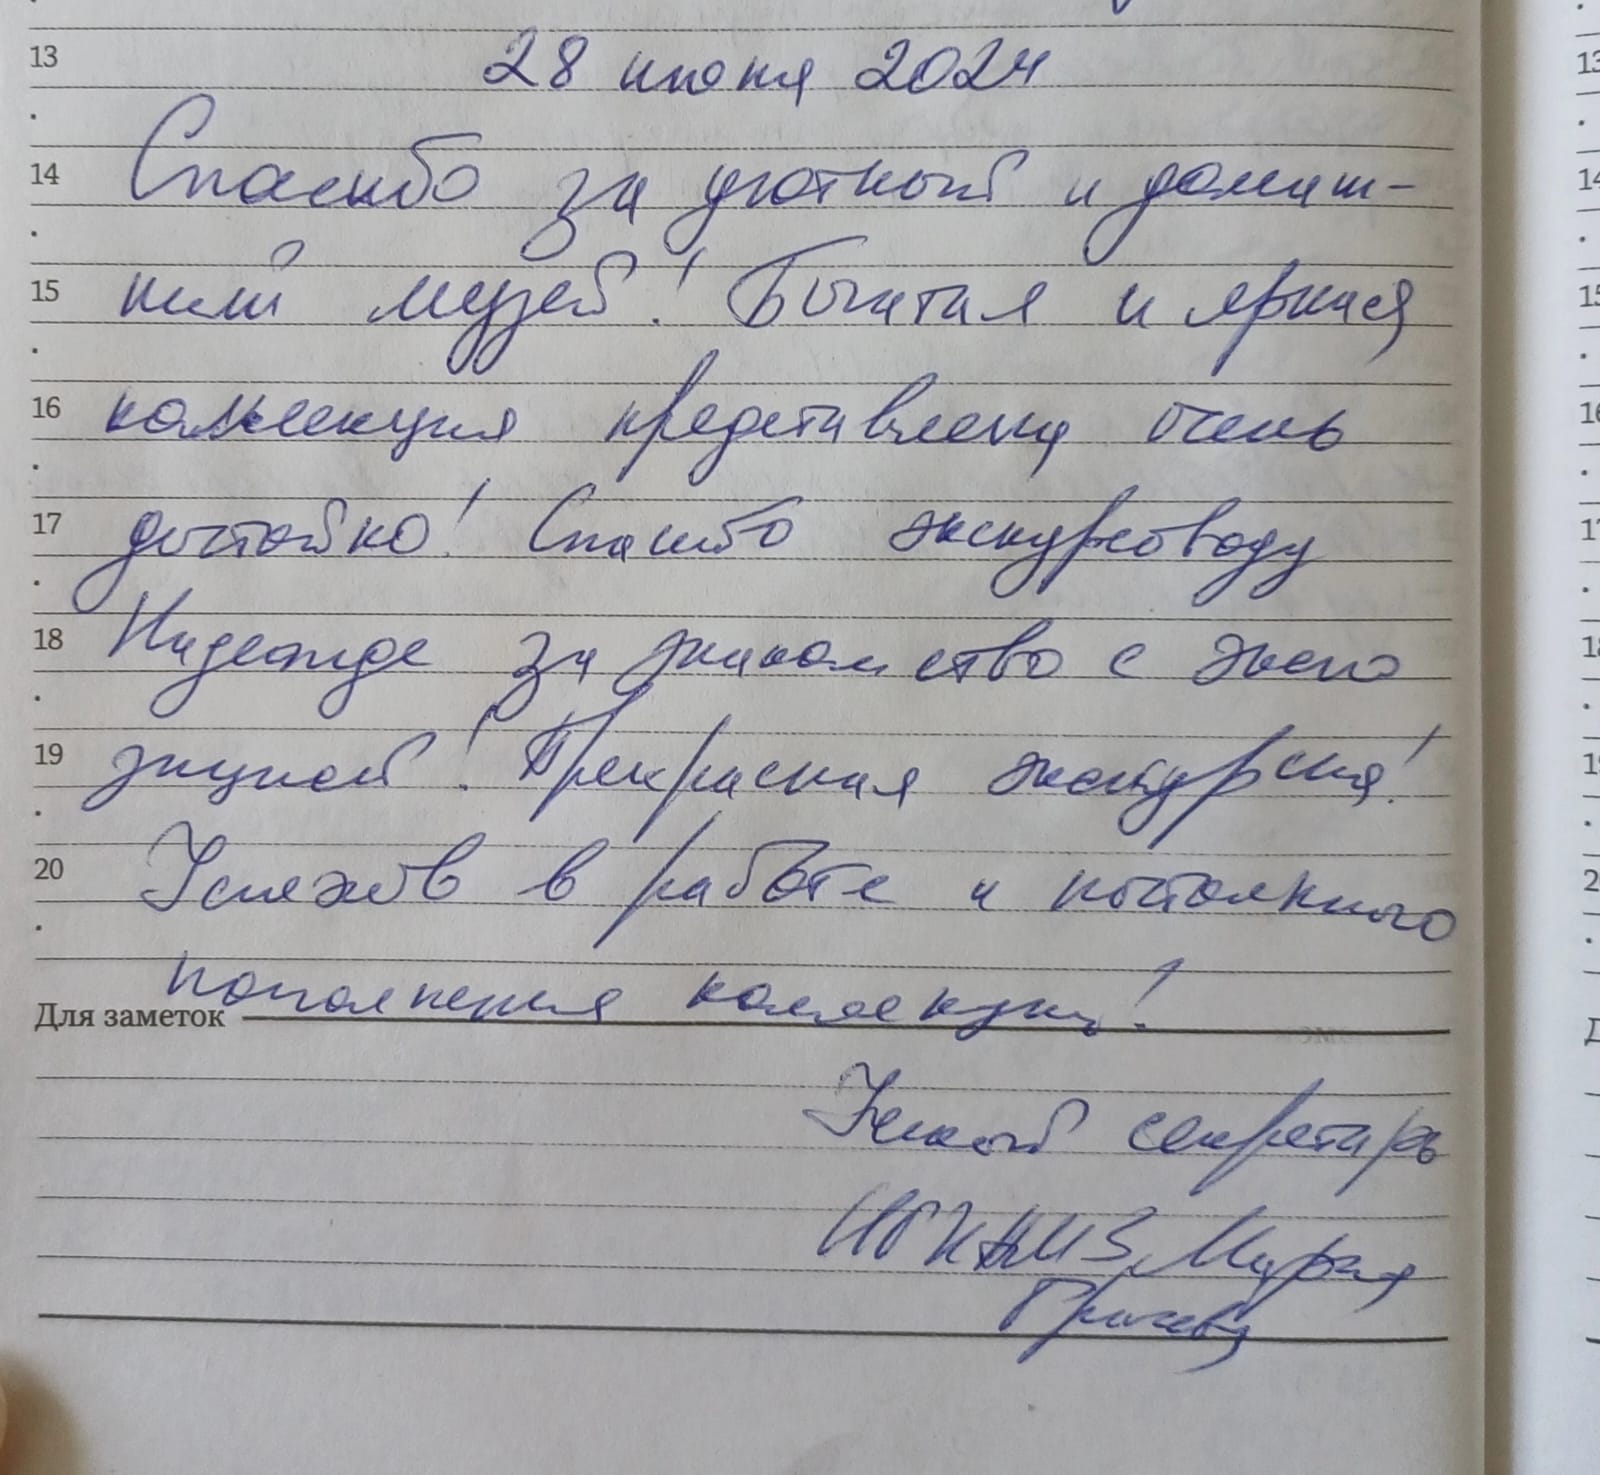 13
28 июня 2024
14
Спасибо за уютный и домаш-
15
ний музей! Богатая и яркая
16
коллекция представлена очень
17
достойно! Спасибо экскурсоводу
18
Надежде за знакомство с экспо
19
зицией! Прекрасная экскурсия!
20
Успехов в работе и постоянного
пополнения коллекции!
Для заметок
Ученый секретарь
Мария
13
14
15
16
17
18
19